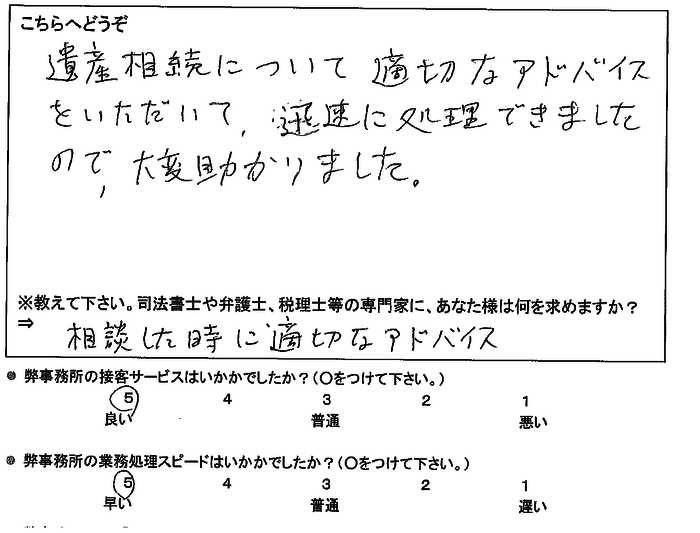 こちらへどうぞ
遺産相続について適切なアドバイス
をいただいて、迅速に処理できました
ので、大変助かりました。
※教えて下さい。司法書士や弁護士、税理士等の専門家に、あなた様は何を求めますか？
⇒ 相談した時に適切なアドバイス
● 弊事務所の接客サービスはいかかでしたか？（○をつけて下さい。）
5 4 3 2 1
良い 普通 悪い
● 弊事務所の業務処理スピードはいかかでしたか？（○をつけて下さい。）
5 4 3 2 1
早い 普通 遅い